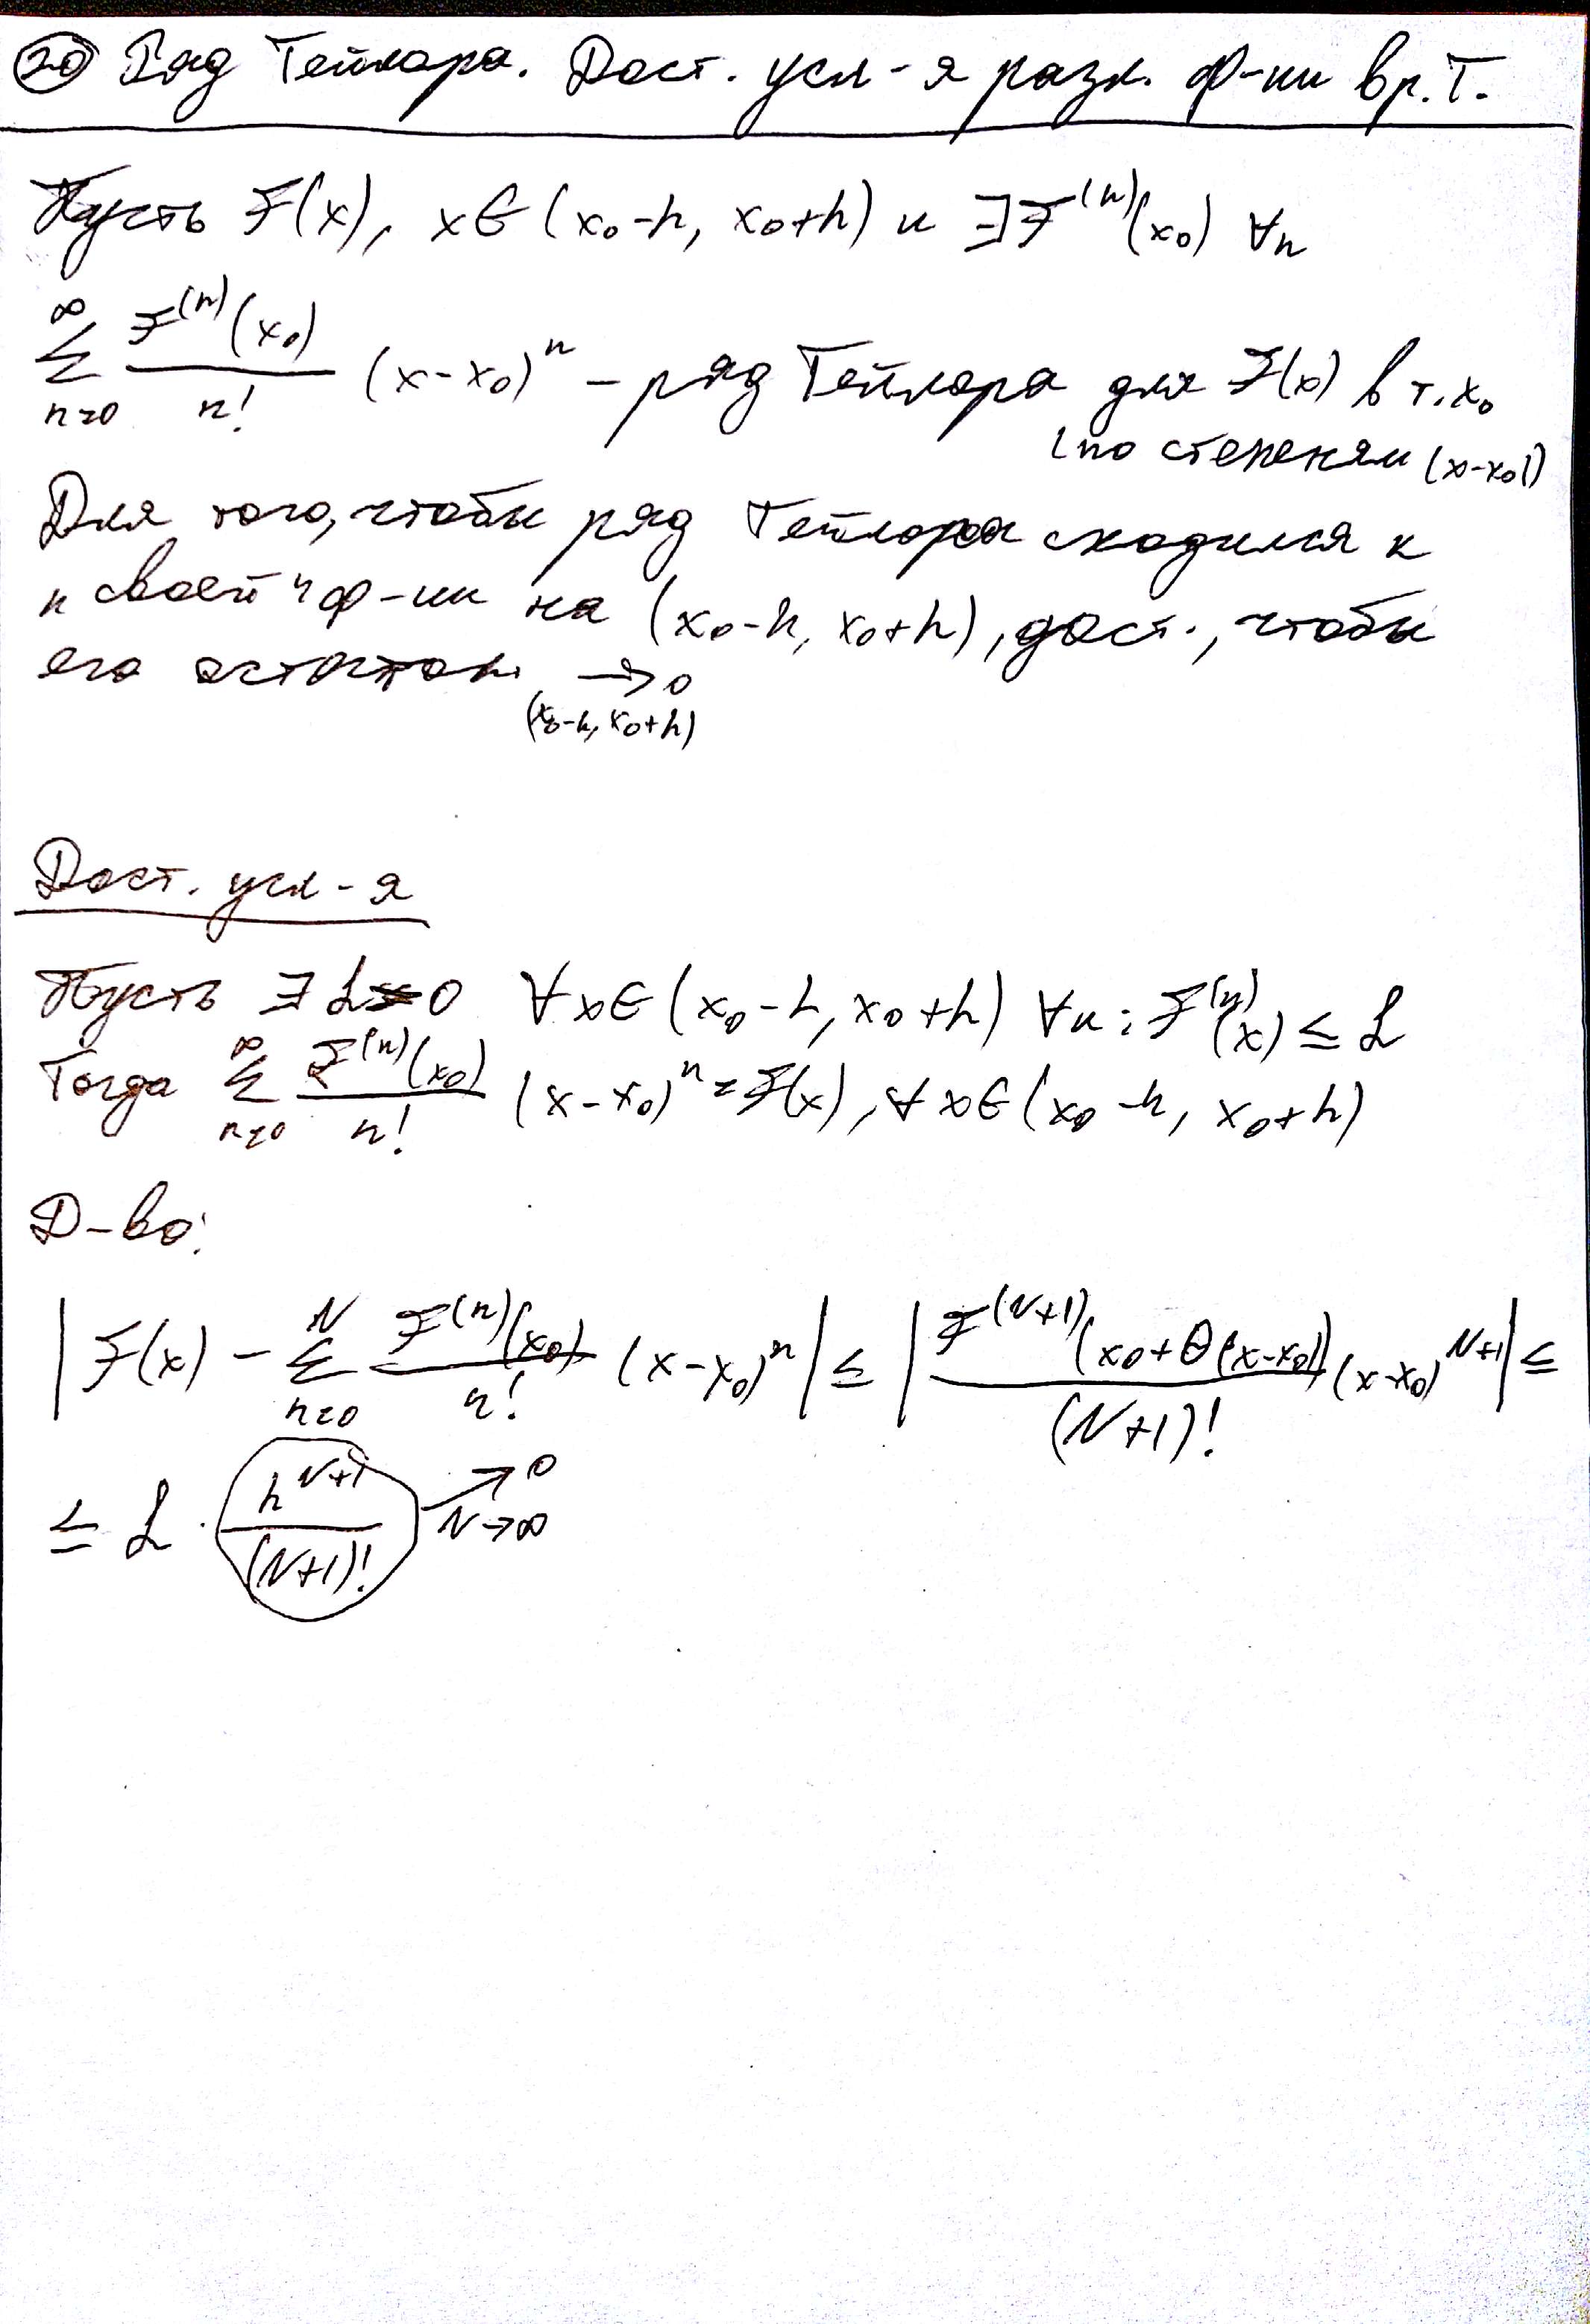 20 Ряд Тейлора. Дост. усл-я разл. ф-ии в р. Т.
Пусть F(x), x∈(x₀-h, x₀+h) и ∃F⁽ⁿ⁾(x₀) ∀n
∑_{n=0}^{∞} F⁽ⁿ⁾(x₀)/n! (x-x₀)ⁿ - ряд Тейлора для F(x) в т. x₀
(по степеням (x-x₀))
Для того, чтобы ряд Тейлора сходился к
"своей" ф-ии на (x₀-h, x₀+h), дост., чтобы
его остаток → 0
(x₀-h, x₀+h)
Дост. усл-я
Пусть ∃ L>0 ∀x∈(x₀-h, x₀+h) ∀n: F⁽ⁿ⁾(x) ≤ L
Тогда ∑_{n=0}^{∞} F⁽ⁿ⁾(x₀)/n! (x-x₀)ⁿ = F(x), ∀x∈(x₀-h, x₀+h)
Д-во:
|F(x) - ∑_{n=0}^{N} F⁽ⁿ⁾(x₀)/n! (x-x₀)ⁿ| ≤ |F^{(N+1)}(x₀+θ(x-x₀))/(N+1)! (x-x₀)^{N+1}| ≤
≤ L · h^{N+1}/(N+1)! → 0 N→∞